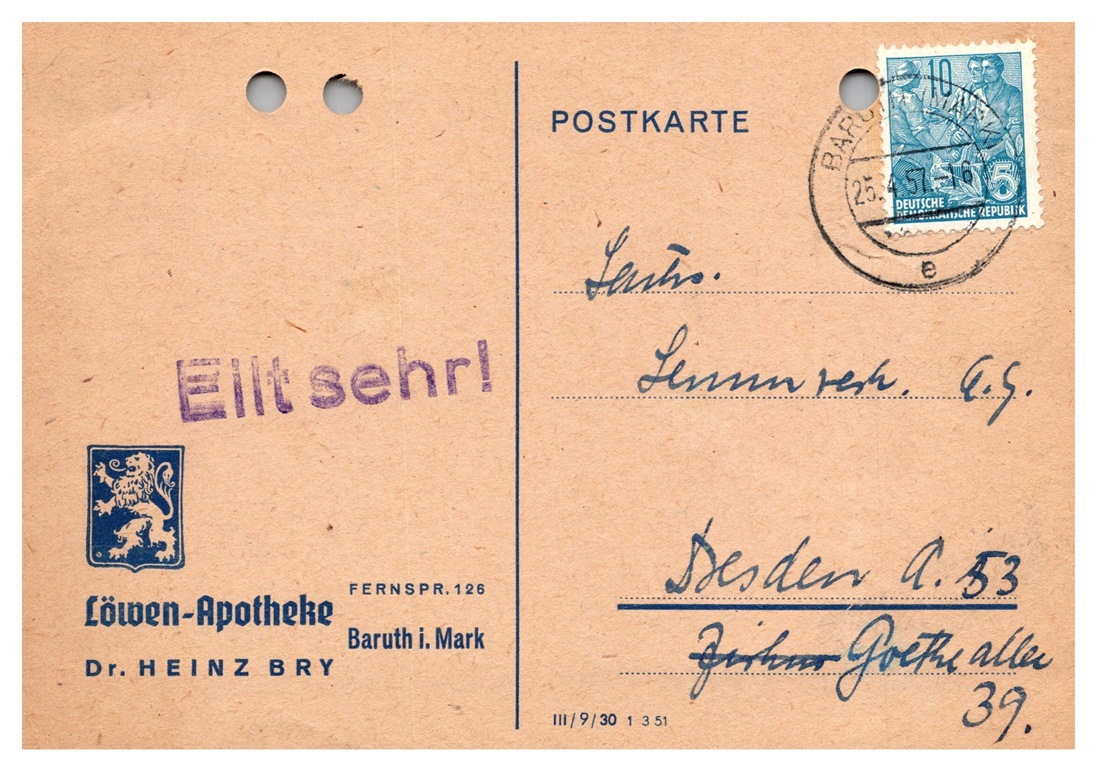 POSTKARTE
10
BARUTH (MARK)
25.4.57.-16
e
5
DEUTSCHE
DEMOKRATISCHE REPUBLIK
A.G.
Dresden A. 53
Goethe allee
39.
Eilt sehr!
Löwen-Apotheke
Dr. HEINZ BRY
FERNSPR. 126
Baruth i. Mark
III/9/30 1 3 51